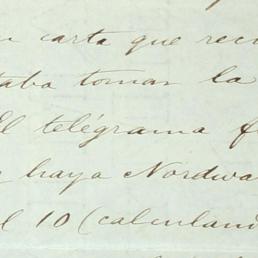 carta que
taba tomar la
El telégrama
haya Nordwa
10 (calculan